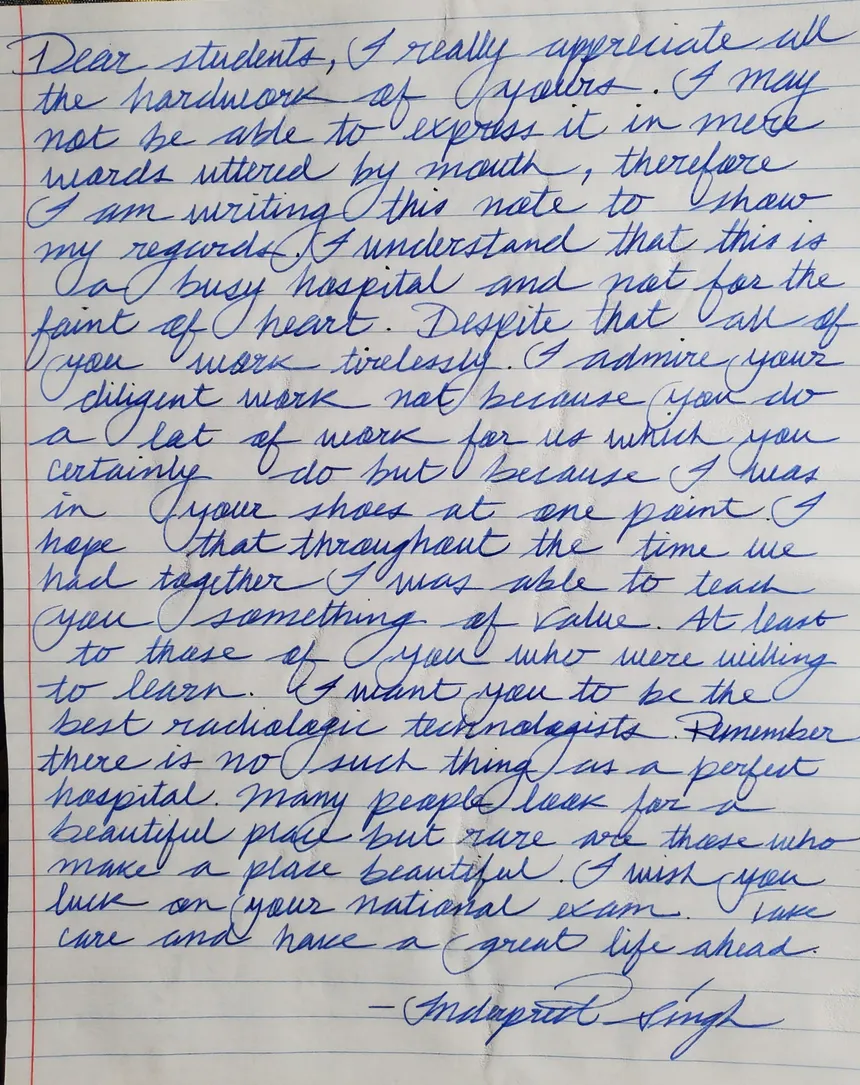 Dear students, I really appreciate all
the hardwork of yours. I may
not be able to express it in mere
words uttered by mouth, therefore
I am writing this note to show
my regards. I understand that this is
a busy hospital and not for the
faint of heart. Despite that all of
you work tirelessly. I admire your
diligent work not because you do
a lot of work for us which you
certainly do but because I was
in your shoes at one point. I
hope that throughout the time we
had together I was able to teach
you something of value. At least
to those of you who were willing
to learn. I want you to be the
best radiologic technologists. Remember
there is no such thing as a perfect
hospital. Many people look for a
beautiful place but rare are those who
make a place beautiful. I wish you
luck on your national exam. Take
care and have a great life ahead.
- Inderpreet Singh